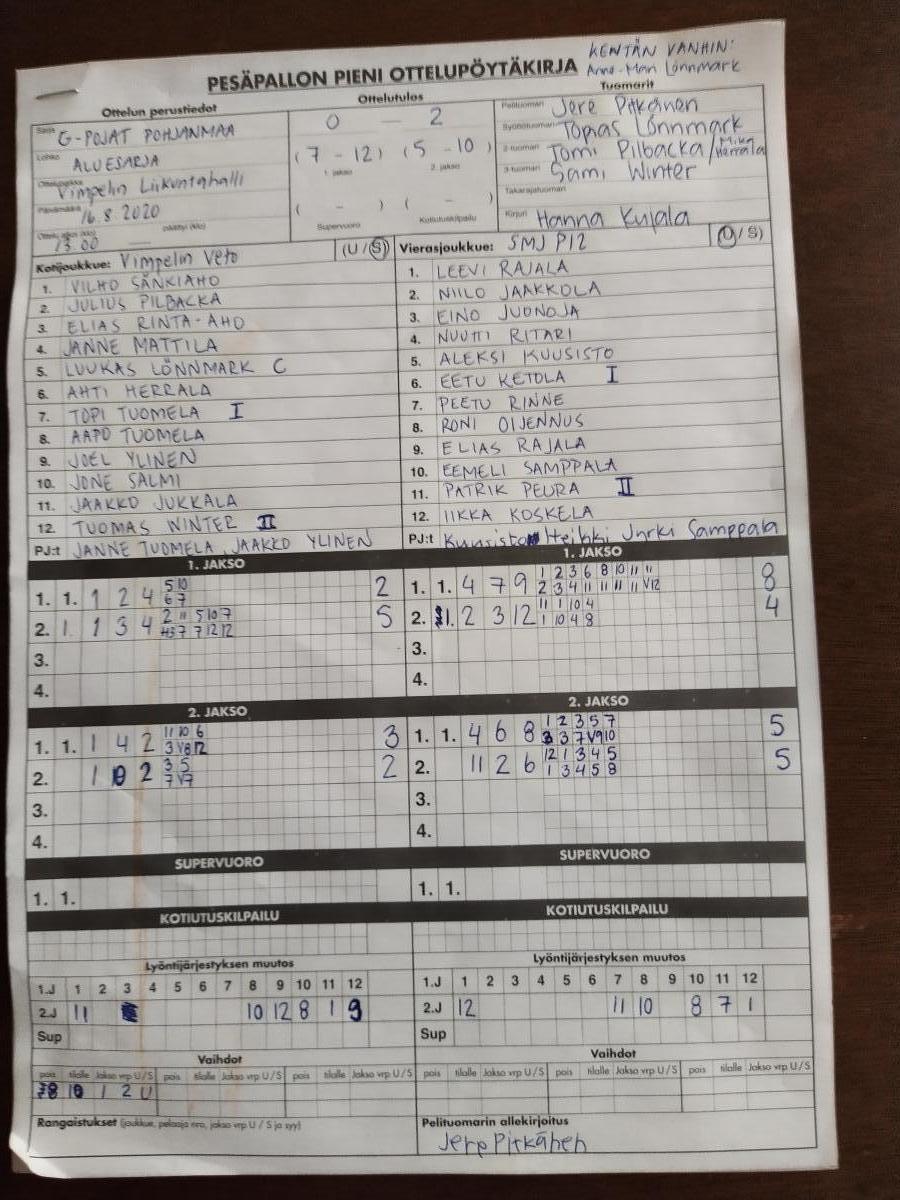 KENTÄN VANHIN:
PESÄPALLON PIENI OTTELUPÖYTÄKIRJA Lönnmark
Ottelun perustiedot Ottelutulos Tuomarit
Sarja G-POJAT POHJANMAA 0 — 2 Pelituomari Jere Pitkänen
Lohko ALUESARJA (7 - 12) (5 - 10) Syöttötuomari Topias Lönnmark
1. jakso 2. jakso 2-tuomari Tomi Pilbacka/Mika Herrala
Ottelupaikka Vimpelin Liikuntahalli 3-tuomari Sami Winter
Päivämäärä 16.8.2020 ( - ) ( - ) Takarajatuomari
Ottelu alkoi (klo) 13.00 — päättyi (klo) Supervuoro Kotiutuskilpailu Kirjuri Hanna Kujala
Kotijoukkue: Vimpelin Veto (U/S) Vierasjoukkue: SMJ P12 (U/S)
1. VILHO SÄNKIAHO 1. LEEVI RAJALA
2. JULIUS PILBACKA 2. NIILO JAAKKOLA
3. ELIAS RINTA-AHO 3. EINO JUONOJA
4. JANNE MATTILA 4. NUUTTI RITARI
5. LUUKAS LÖNNMARK C 5. ALEKSI KUUSISTO
6. AHTI HERRALA 6. EETU KETOLA I
7. TOPI TUOMELA I 7. PEETU RINNE
8. AAPO TUOMELA 8. RONI OIJENNUS
9. JOEL YLINEN 9. ELIAS RAJALA
10. JONE SALMI 10. EEMELI SAMPPALA
11. JAAKKO JUKKALA 11. PATRIK PEURA II
12. TUOMAS WINTER II 12. IIKKA KOSKELA
PJ:t JANNE TUOMELA, JAAKKO YLINEN PJ:t Kuusisto Heikki Jyrki Samppala
1. JAKSO 1. JAKSO
5 10 1 2 3 6 8 10 11 11
1. 1. 1 2 4 2 1. 1. 4 7 9 8
6 7 2 3 4 11 11 11 11 V12
2 11 5 10 7 11 1 10 4
2. 1 1 3 4 5 2. 1. 2 3 12 4
7 7 12 12 1 10 4 8
3. 3.
4. 4.
2. JAKSO 2. JAKSO
11 10 6 1 2 3 5 7
1. 1. 1 4 2 3 1. 1. 4 6 8 5
3 V8 12 3 3 7 V9 10
3 5 12 1 3 4 5
2. 1 2 2 2. 11 2 6 5
7 V7 1 3 4 5 8
3. 3.
4. 4.
SUPERVUORO SUPERVUORO
1. 1. 1. 1.
KOTIUTUSKILPAILU KOTIUTUSKILPAILU
Lyöntijärjestyksen muutos Lyöntijärjestyksen muutos
1.J 1 2 3 4 5 6 7 8 9 10 11 12 1.J 1 2 3 4 5 6 7 8 9 10 11 12
2.J 11 10 12 8 1 9 2.J 12 11 10 8 7 1
Sup Sup
Vaihdot Vaihdot
pois tilalle Jakso vrp U/S pois tilalle Jakso vrp U/S pois tilalle Jakso vrp U/S pois tilalle Jakso vrp U/S pois tilalle Jakso vrp U/S pois tilalle Jakso vrp U/S
10 1 2 U
Rangaistukset (joukkue, pelaaja nro, jakso vrp U / S ja syy) Pelituomarin allekirjoitus
Jere Pitkänen